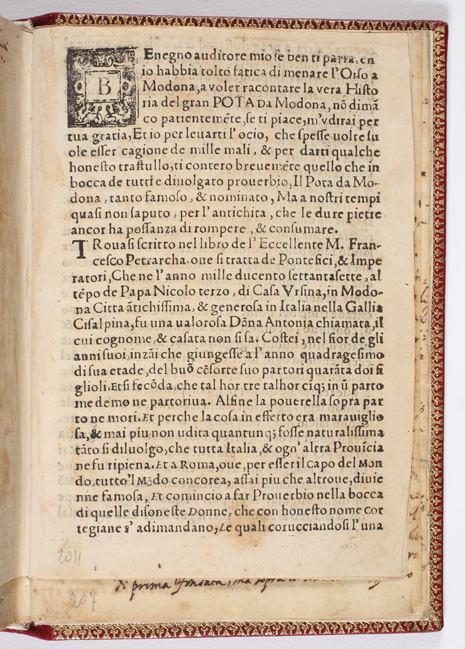 BEnegno auditore mio se ben ti parra, ch
io habbia tolto fatica di menare l'Orso a
Modona, a voler racontare la vera Histo
ria del gran POTA Da Modona, nō dimā
co patientemēte, se ti piace, m'vdirai per
tua gratia, Et io per leuarti l'ocio, che spesse uolte su
ole esser cagione de mille mali, & per darti qualche
honesto trastullo, ti contero breuemēte quello che in
bocca de tutti e diuolgato prouerbio, Il Pota da Mo-
dona, tanto famoso, & nominato, Ma a nostri tempi
quasi non saputo, per l'antichita, che le dure pietre
ancor ha possanza di rompere, & consumare.
TRouasi scritto nel libro de l'Eccellente M. Fran-
cesco Petrarcha. oue si tratta de Pontefici, & Impe
ratori, Che ne l'anno mille ducento settantasette, al
tēpo de Papa Nicolo terzo, di Casa Vrsina, in Modo-
na Citta ātichissima, & generosa in Italia nella Gallia
Cisalpina, fu una ualorosa Dōna Antonia chiamata, il
cui cognome, & casata non si sa. Costei, nel fior de gli
anni suoi, inzāi che giungesse a l'anno quadragesimo
di sua etade, del buō cōsorte suo partori quarāta doi fi
glioli. Et si fecōda, che tal hor tre talhor cīqȝ in ū parto
me demo ne partoriua. Alfine la pouerella sopra par
to ne mori. Et perche la cosa in effetto era marauiglio
sa, & mai piu non udita quantunqȝ fosse naturalissima
tāto si diluolgo, che tutta Italia, & ogn'altra Prouīcia
ne fu ripiena. Et a Roma, oue, per esser il capo del Mon
do, tutto'l Mōdo concorea, assai piu che altroue, diuie
nne famosa, Et comincio a far Prouerbio nella bocca
di quelle disoneste Donne, che con honesto nome cor
tegiane s'adimandāno, Le quali corucciandosi l'una
204
207
di prima